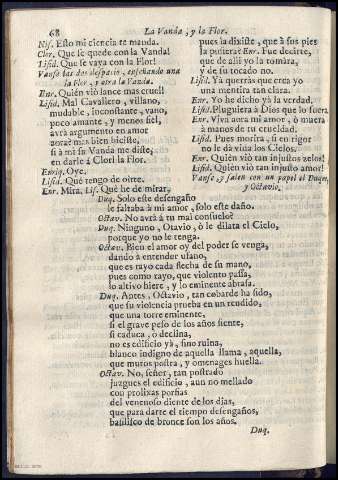 68 La Vanda, y la Flor.
Nis. Esto mi ciencia te manda.
Clor. Que se quede con la Vanda!
Lisid. Que se vaya con la Flor!
Vanse las dos despacio, enseñando una
la Flor, y otra la Vanda.
Enr. Quièn viò lance mas cruel!
Lisid. Mal Cavallero, villano,
mudable, inconstante, vano,
poco amante, y menos fiel,
avrà argumento en amor
aora? mas bien hiciste,
si à mi su Vanda me diste,
en darle à Clori la Flor.
Enriq. Oye.
Lisid. Què tengo de oirte.
Enr. Mira. Lis. Què he de mirar,
pues ia dixiste, que à sus pies
la pusiera? Enr. Fue decirte,
que de alli yo la tomàra,
y de su tocado no.
Lisid. Yà querràs que crea yo
una mentira tan clara.
Enr. Yo he dicho yà la verdad.
Lisid. Pluguiera à Dios que lo fuera.
Enr. Viva aora mi amor, ò muera
à manos de tu crueldad.
Lisid. Pues morirà, si en rigor
no le dà vida los Cielos.
Enr. Quièn viò tan injustos zelos!
Lisid. Quièn viò tan injusto amor!
Vanse, y salen con un papel el Duque,
y Octavio.
Duq. Solo este desengaño
le faltaba à mi amor, solo este daño.
Octav. No avrà à tu mal consuelo?
Duq. Ninguno, Otavio, ò le dilata el Cielo,
porque yo no le tenga.
Octav. Bien el amor oy del poder se venga,
dando à entender ufano,
que es rayo cada flecha de su mano,
pues como rayo, que violento passa,
lo altivo hiere, y lo eminente abrasa.
Duq. Antes, Octavio, tan cobarde ha sido,
que su violencia prueba en un rendido,
que una torre eminente,
si el grave peso de los años siente,
si caduca, ò declina,
no es edificio yà, sino ruina,
blanco indigno de aquella llama, aquella,
que muros postra, y omenages huella.
Octav. No, señor, tan postrado
juzgues el edificio, aun no mellado
con prolixas porfias
del venenoso diente de los dias,
que para darte el tiempo desengaños,
basilisco de bronce son los años.
Duq.